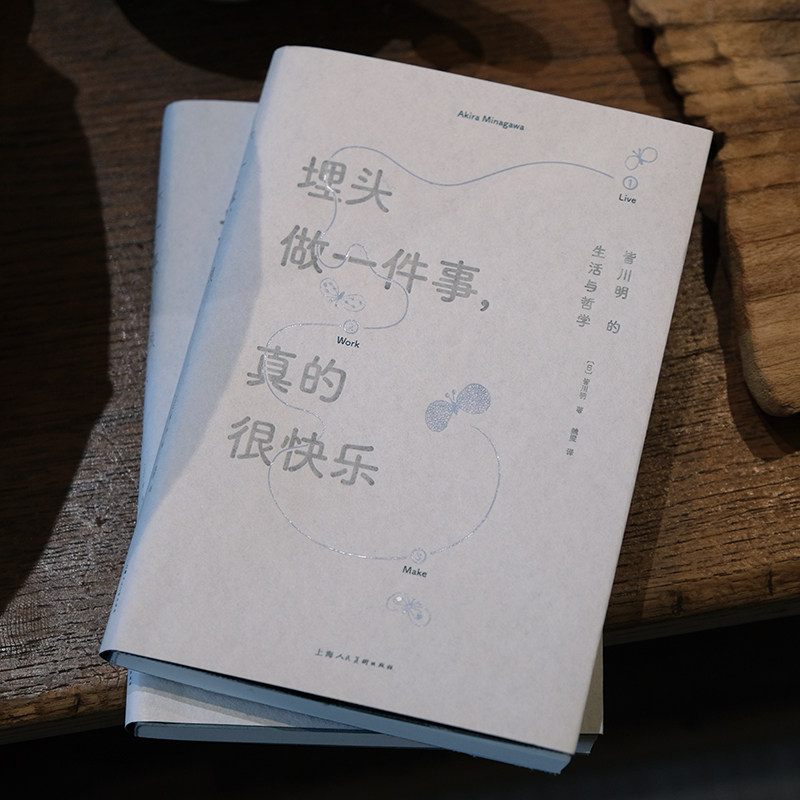 Akira Minagawa
埋头
做一件事，
真的
很快乐
① Live
② Work
③ Make
皆川明 的
生活与哲学
[日] 皆川明 著
上海人民美術出版社